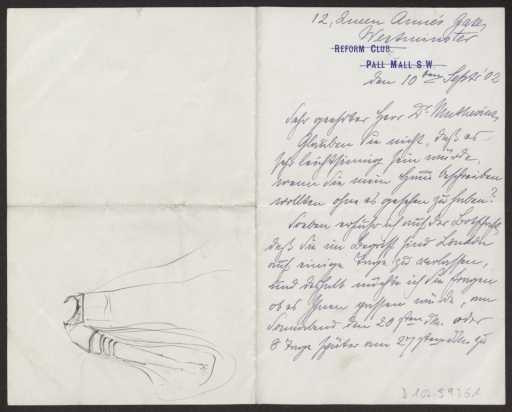 12, Queen Anne's Gate,
Westminster
REFORM CLUB.
PALL MALL S.W.
den 10ten Sept. '02
Sehr geehrter Herr Dr Muthesius,
Glauben Sie nicht, daß es
sehr leichtsinnig sein würde,
wenn Sie mein Haus beschreiben
wollten ohne es gesehen zu haben?
Soeben erfuhr ich auf der Botschaft,
daß Sie im Begriff sind London
auf einige Tage zu verlassen,
und deshalb möchte ich Sie fragen
ob es Ihnen passen würde, am
Sonnabend den 20sten ds. oder
8 Tage später am 27sten ds. zu